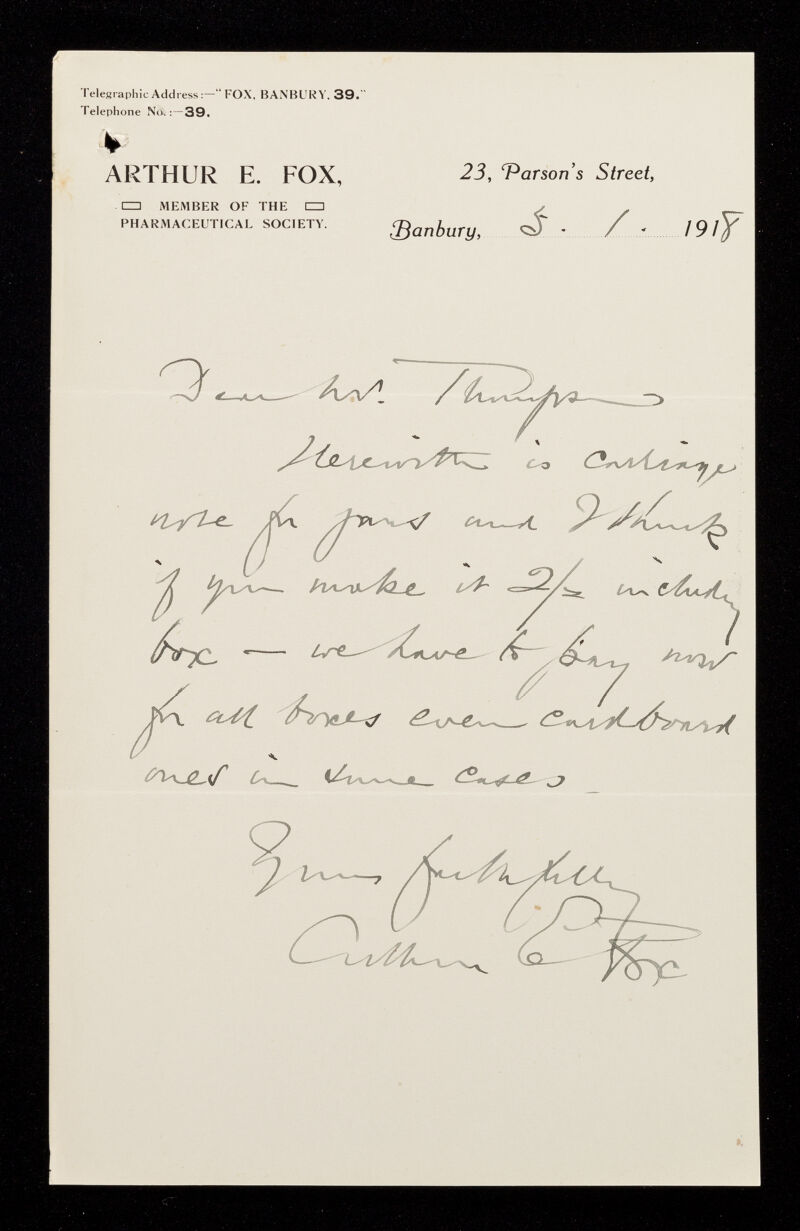 Telegraphic Address:—"FOX, BANBURY. 39."
Telephone No.:—39.
ARTHUR E. FOX,
MEMBER OF THE
PHARMACEUTICAL SOCIETY.
23, Parson's Street,
Banbury, 5 . 1 . 1918
Dear Mr. Thompson
Herewith is Carriage
note for jars and I think
if you make it 2/- including
box — we have to pay now
for all boxes even Cardboard
ones in some Cases
Yours faithfully
Arthur E Fox